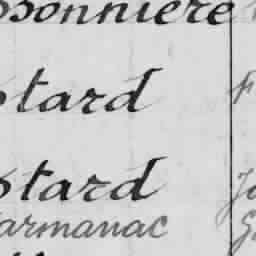 ssonnière
stard F
stard Jo
armanac G